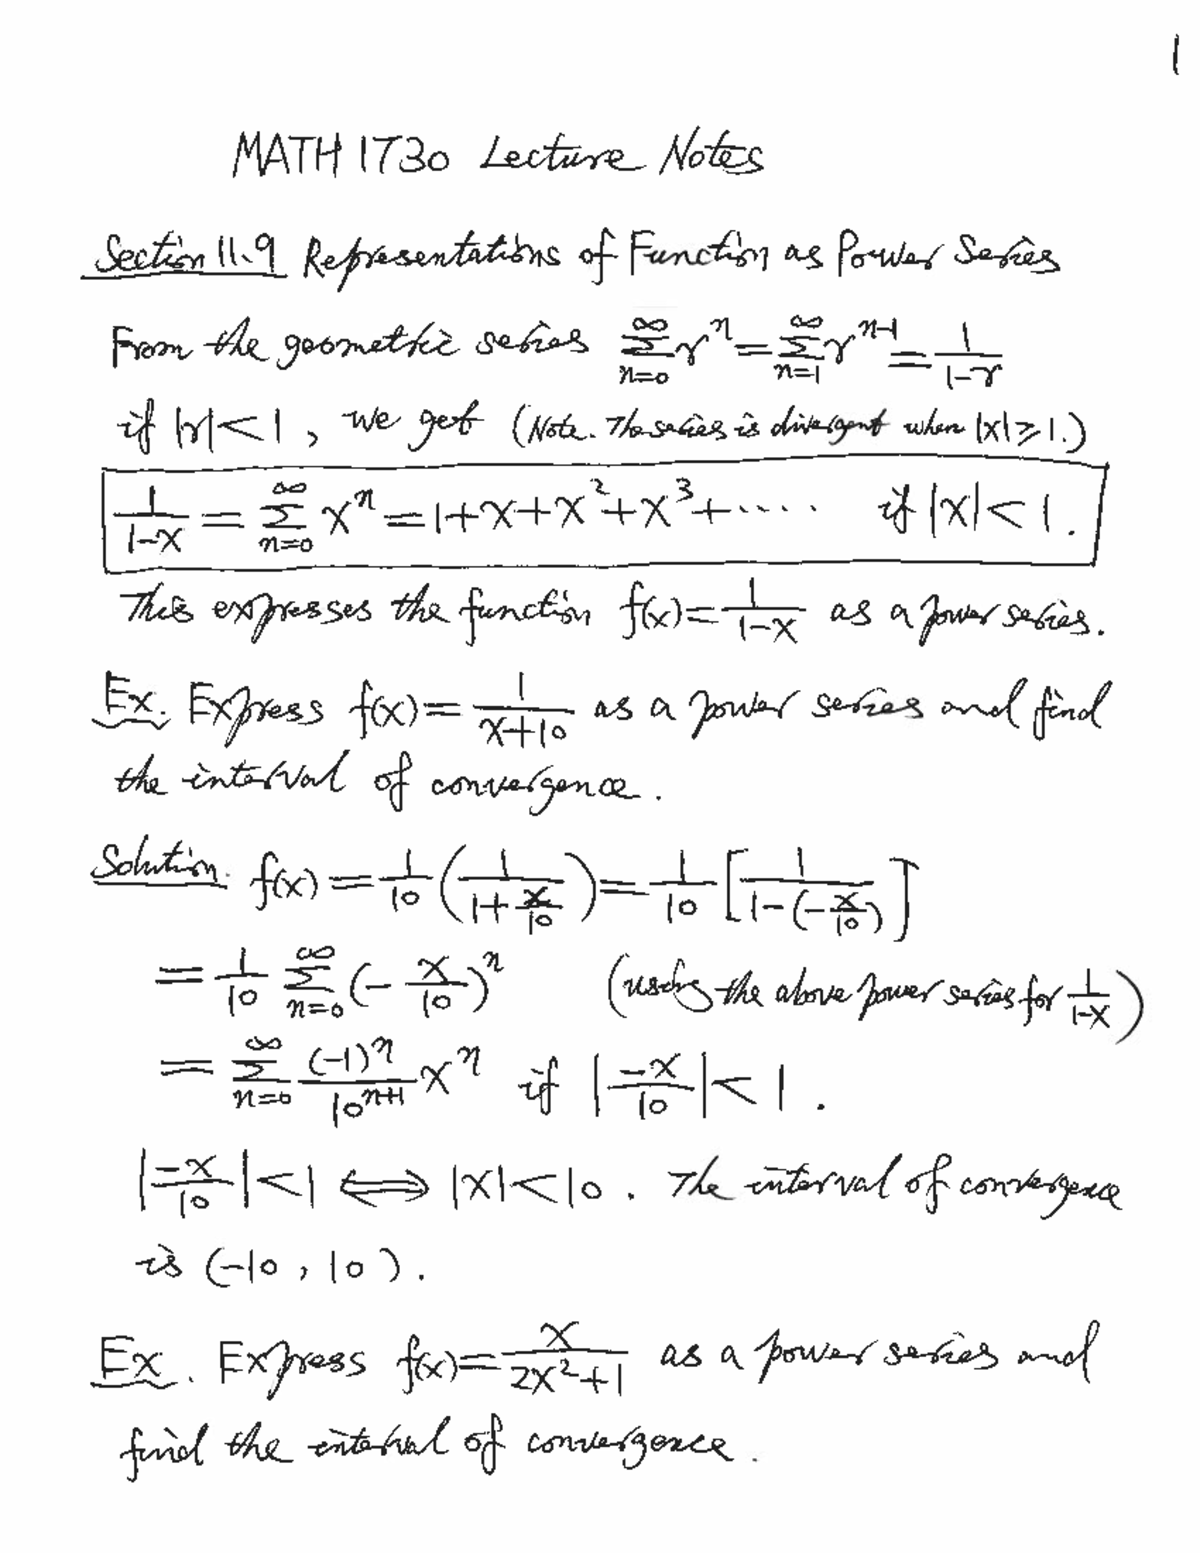 1
MATH 1730 Lecture Notes
Section 11.9 Representations of Function as Power Series
From the geometric series ∑_{n=0}^{∞} r^n = ∑_{n=1}^{∞} r^{n-1} = 1/(1-r)
if |r| < 1, we get (Note. The series is divergent when |x| ≥ 1.)
1/(1-x) = ∑_{n=0}^{∞} x^n = 1 + x + x^2 + x^3 + ····· if |x| < 1.
This expresses the function f(x) = 1/(1-x) as a power series.
Ex. Express f(x) = 1/(x+10) as a power series and find
the interval of convergence.
Solution. f(x) = 1/10 (1/(1 + x/10)) = 1/10 [1/(1-(-x/10))]
= 1/10 ∑_{n=0}^{∞} (-x/10)^n (using the above power series for 1/(1-x))
= ∑_{n=0}^{∞} (-1)^n/10^{n+1} x^n if |-x/10| < 1.
|-x/10| < 1 ⟺ |x| < 10. The interval of convergence
is (-10, 10).
Ex. Express f(x) = x/(2x^2+1) as a power series and
find the interval of convergence.